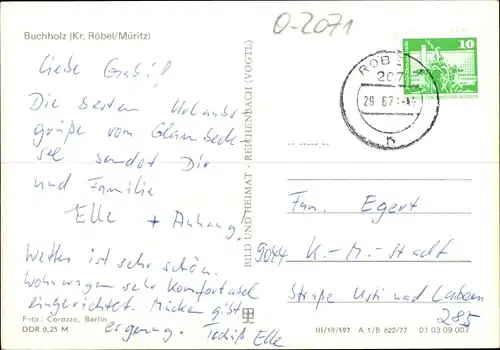 O-2071
Buchholz (Kr. Röbel/Müritz)
Liebe Gabi!
Die besten Urlaubs
grüße vom Glambeck-
see sendet Dir
und Familie
Elke + Anhang.
Wetter ist sehr schön.
Wohnwagen sehr komfortabel
eingerichtet. Mücken gibt
ergenug. Tschüß Elke
Foto: Corazza, Berlin
DDR 0,25 M
BILD UND HEIMAT · REICHENBACH (VOGTL)
10
RÖBEL
207
29.
h
Fam. Egert
9044 K.-M.-Stadt
Straße Usti nad Labem
285
III/18/197 A 1/B 622/77 01 03 09 007